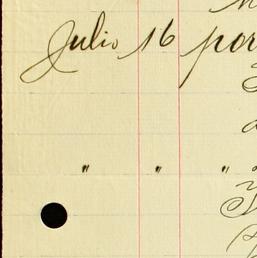 Julio 16 por
" " "